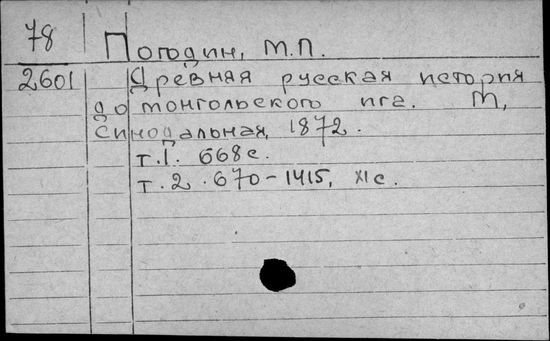 78 Погодин, М.П.
2601 Древняя русская история
до монгольского ига. М,
Синодальная, 1872.
т.1. 668с.
т.2. 670-1415, XIс.